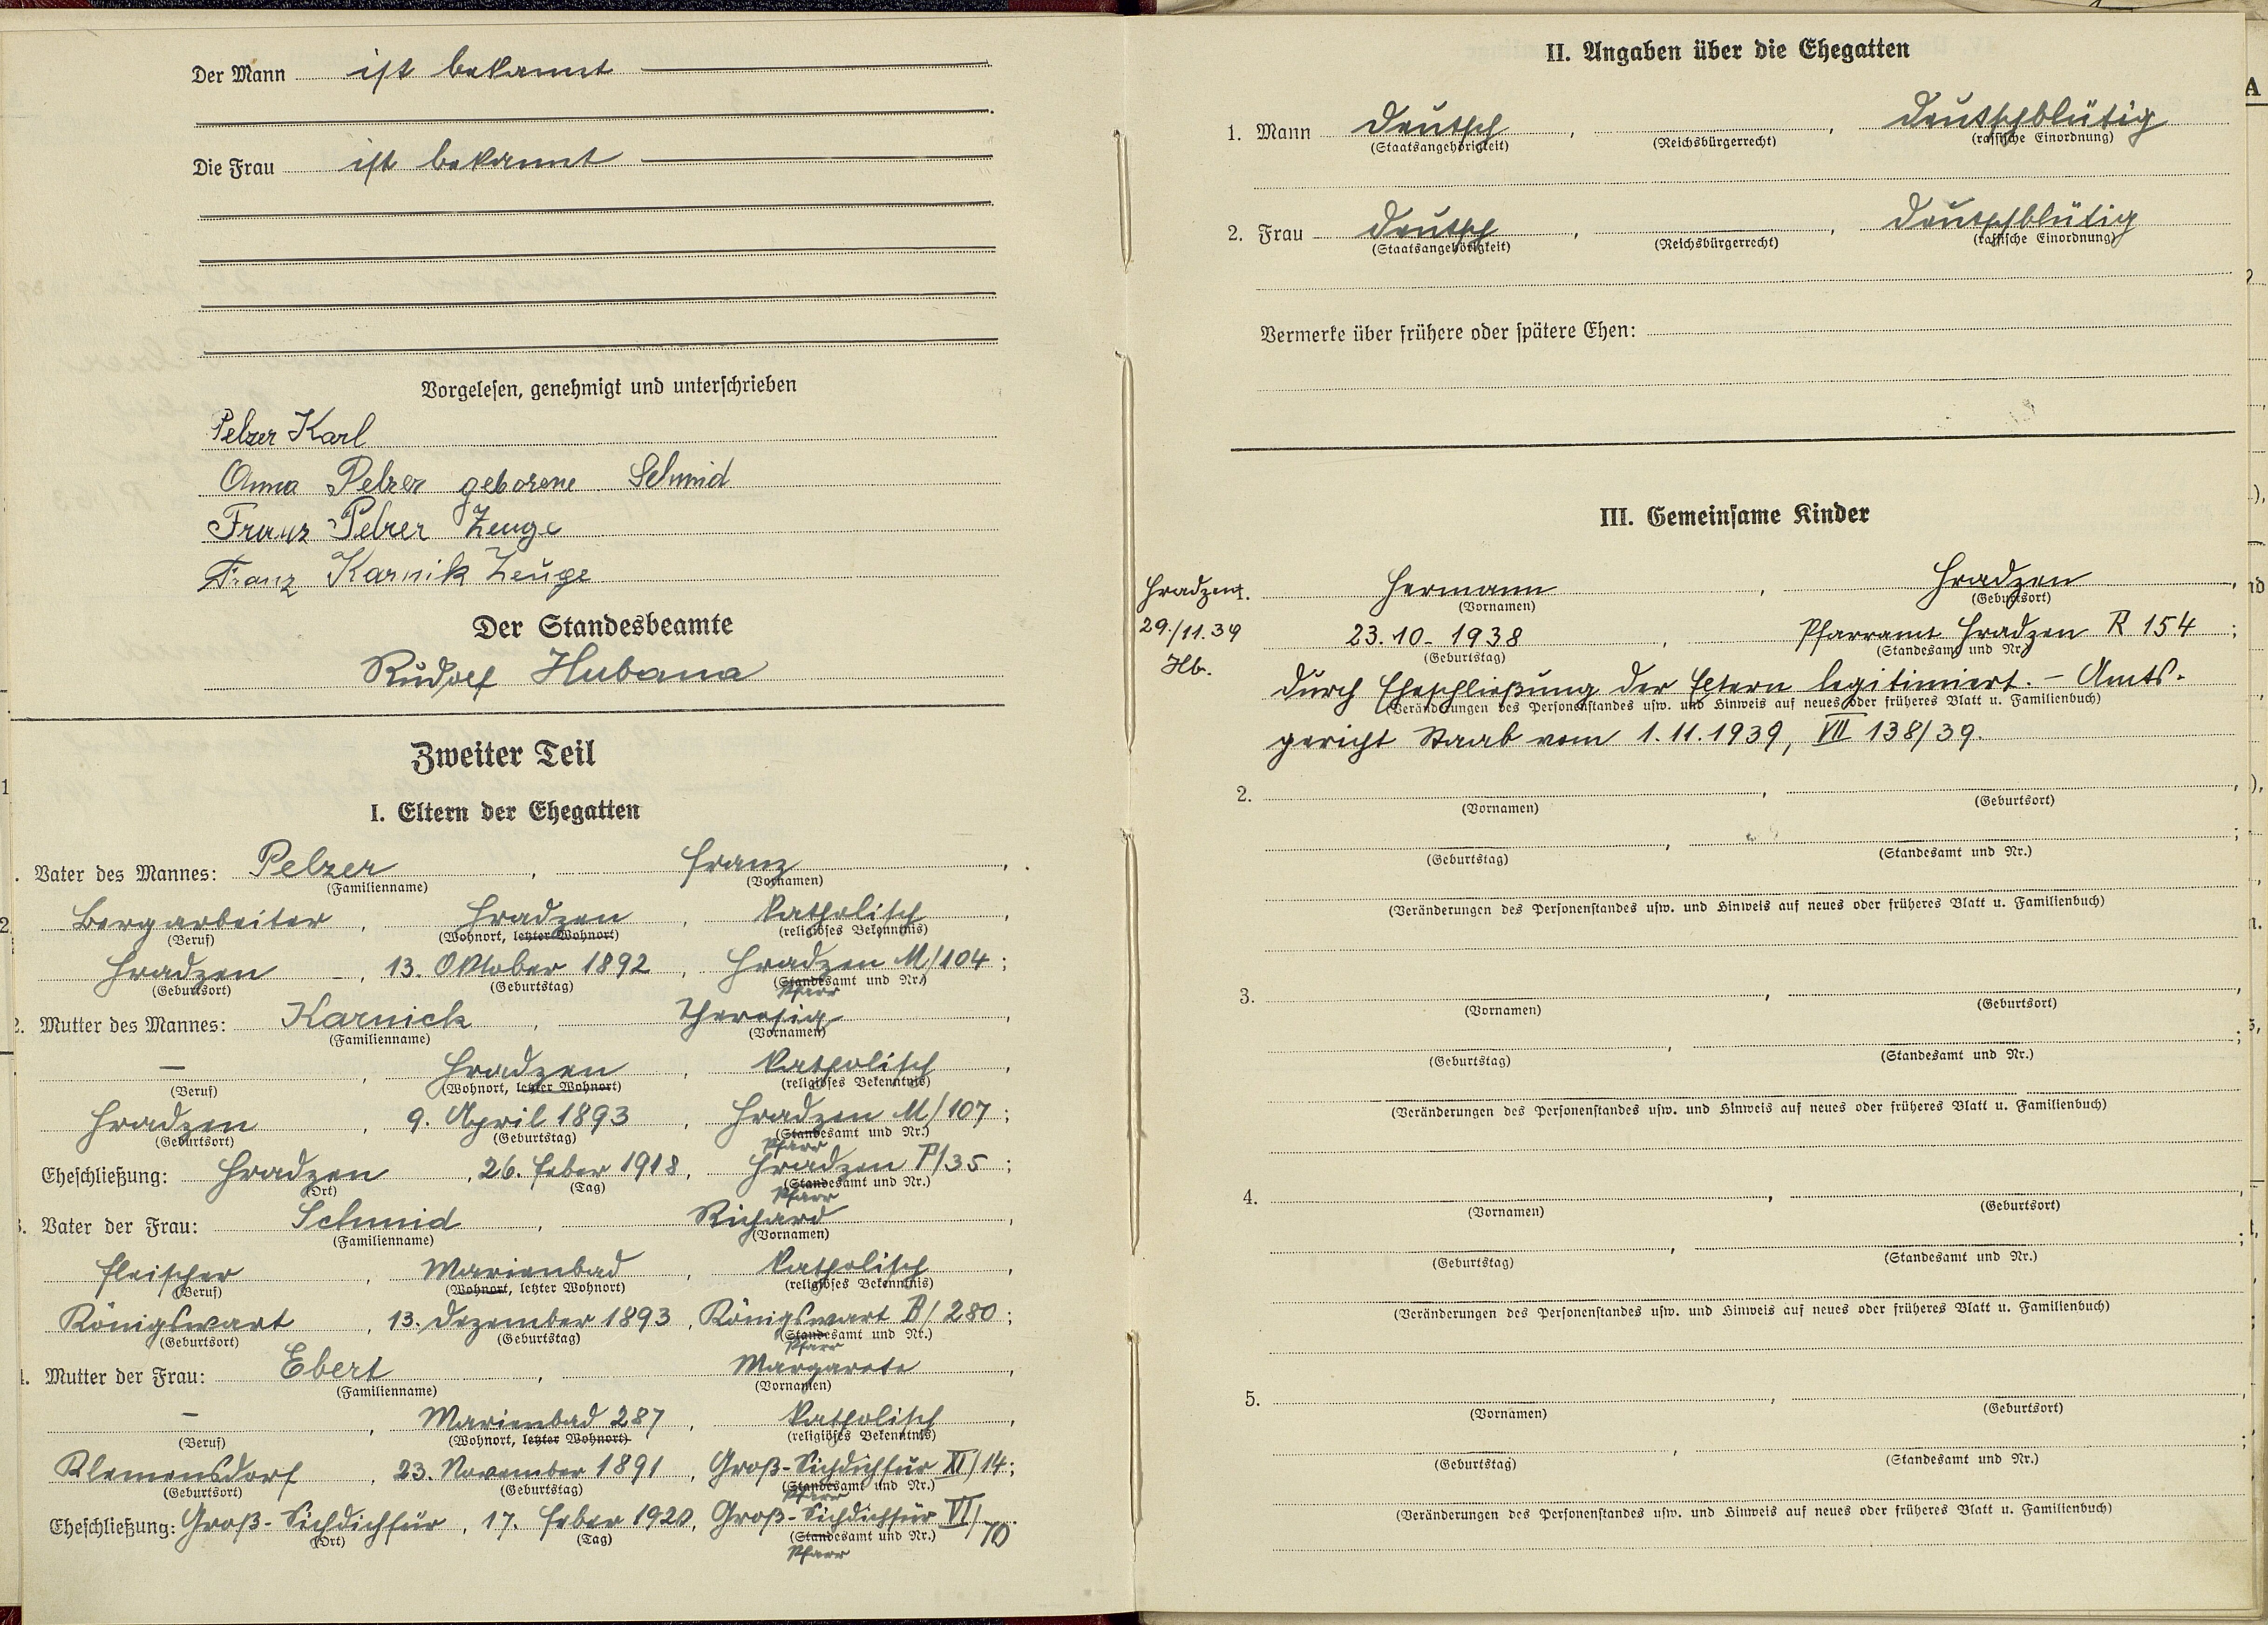 Der Mann ist bekannt
Die Frau ist bekannt
Vorgelesen, genehmigt und unterschrieben
Pelzer Karl
Anna Pelzer geborene Schmid
Franz Pelzer Zeuge
Franz Karnik Zeuge
Der Standesbeamte
Rudolf Hubana
Zweiter Teil
I. Eltern der Ehegatten
. Vater des Mannes: Pelzer, Franz,
(Familienname) (Vornamen)
Bergarbeiter, Hradzen, katholisch,
(Beruf) (Wohnort, letzter Wohnort) (religiöses Bekenntnis)
Hradzen, 13. Oktober 1892, Hradzen M/104;
(Geburtsort) (Geburtstag) (Standesamt und Nr.)
Pfarr
2. Mutter des Mannes: Karnick, Theresia,
(Familienname) (Vornamen)
–, Hradzen, katholisch,
(Beruf) (Wohnort, letzter Wohnort) (religiöses Bekenntnis)
Hradzen, 9. April 1893, Hradzen M/107;
(Geburtsort) (Geburtstag) (Standesamt und Nr.)
Pfarr
Eheschließung: Hradzen, 26. Feber 1918, Hradzen P/35;
(Ort) (Tag) (Standesamt und Nr.)
Pfarr
3. Vater der Frau: Schmid, Richard,
(Familienname) (Vornamen)
Fleischer, Marienbad, katholisch,
(Beruf) (Wohnort, letzter Wohnort) (religiöses Bekenntnis)
Königswart, 13. Dezember 1893, Königswart B/280;
(Geburtsort) (Geburtstag) (Standesamt und Nr.)
Pfarr
4. Mutter der Frau: Ebert, Margarete,
(Familienname) (Vornamen)
–, Marienbad 287, katholisch,
(Beruf) (Wohnort, letzter Wohnort) (religiöses Bekenntnis)
Klemensdorf, 23. November 1891, Groß-Sichdichfür XI/14;
(Geburtsort) (Geburtstag) (Standesamt und Nr.)
Pfarr
Eheschließung: Groß-Sichdichfür, 17. Feber 1920, Groß-Sichdichfür VI/70.
(Ort) (Tag) (Standesamt und Nr.)
Pfarr
II. Angaben über die Ehegatten
1. Mann deutsch, , deutschblütig
(Staatsangehörigkeit) (Reichsbürgerrecht) (rassische Einordnung)
2. Frau deutsch, , deutschblütig
(Staatsangehörigkeit) (Reichsbürgerrecht) (rassische Einordnung)
Vermerke über frühere oder spätere Ehen:
III. Gemeinsame Kinder
Hradzen 1. Hermann, Hradzen,
(Vornamen) (Geburtsort)
29./11.39 23.10.1938, Pfarramt Hradzen R 154;
(Geburtstag) (Standesamt und Nr.)
Hb. durch Eheschließung der Eltern legitimiert. – Amts-
(Veränderungen des Personenstandes usw. und Hinweis auf neues oder früheres Blatt u. Familienbuch)
gericht Staab vom 1.11.1939, VII 138/39.
2. , ,
(Vornamen) (Geburtsort)
, ;
(Geburtstag) (Standesamt und Nr.)
(Veränderungen des Personenstandes usw. und Hinweis auf neues oder früheres Blatt u. Familienbuch)
3. , ,
(Vornamen) (Geburtsort)
, ;
(Geburtstag) (Standesamt und Nr.)
(Veränderungen des Personenstandes usw. und Hinweis auf neues oder früheres Blatt u. Familienbuch)
4. , ,
(Vornamen) (Geburtsort)
, ;
(Geburtstag) (Standesamt und Nr.)
(Veränderungen des Personenstandes usw. und Hinweis auf neues oder früheres Blatt u. Familienbuch)
5. , ,
(Vornamen) (Geburtsort)
, ;
(Geburtstag) (Standesamt und Nr.)
(Veränderungen des Personenstandes usw. und Hinweis auf neues oder früheres Blatt u. Familienbuch)